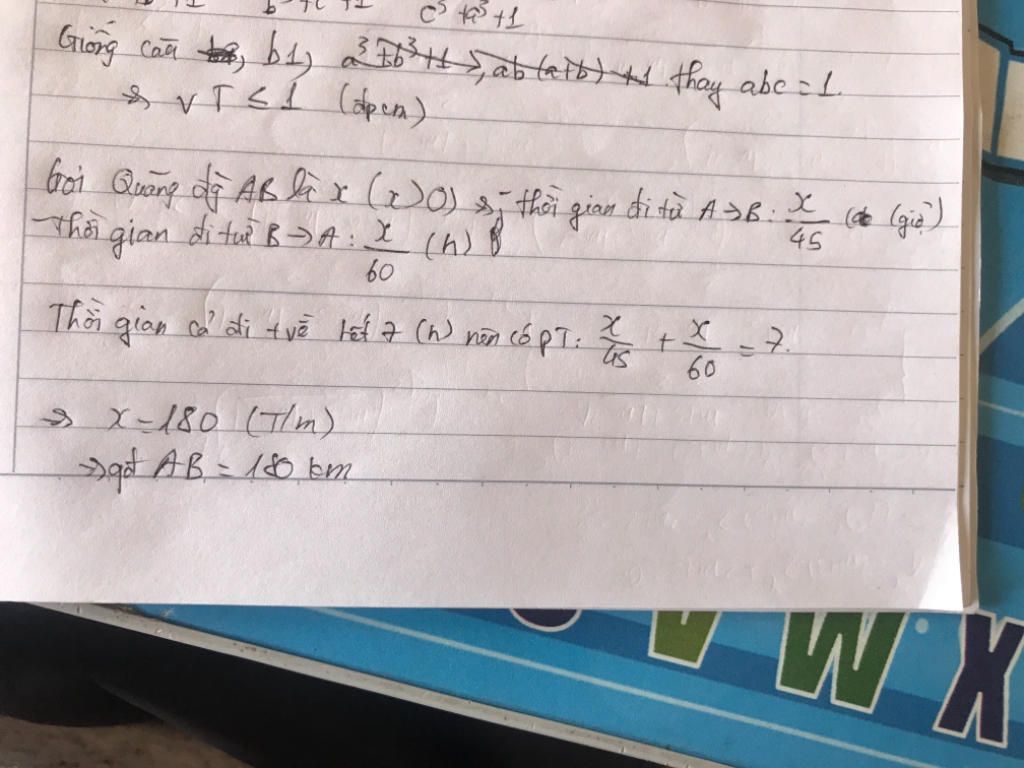 c³ + a³ + 1
Giống câu b1, a³ + b³ + 1 ≥ ab (a+b) + 1 thay abc = 1.
⇒ VT ≤ 1 (đpcm)
Gọi Quãng đg AB là x (x>0) ⇒ - thời gian đi từ A → B : x/45 (giờ)
- Thời gian đi từ B → A : x/60 (h)
Thời gian cả đi + về hết 7 (h) nên có PT: x/45 + x/60 = 7.
⇒ x = 180 (T/m)
⇒ qđ AB = 180 km
M
X